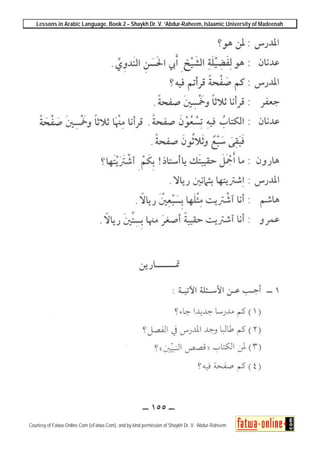 Lessons in Arabic Language, Book 2 – Shaykh Dr. V. ‘Abdur-Raheem, Islaamic University of Madeenah
المدرس : لمن هو؟
عدنان : هو لِفَضِيْلَةِ الشَّيْخِ أَبِي الحَسَنِ النَدْوِيِّ.
المدرس : كم صَفْحَةً قرأتم فيه؟
جعفر : قرأنا ثلاثاً وخَمْسِينَ صفحةً.
عدنان : الكتابُ فيهِ تِسْعُوْنَ صفحةً. قرأنا مِنْهَا ثلاثاً وخَمْسِينَ صَفْحَةً
فَبَقِيَ سَبْعٌ وثَلاثُونَ صفحةً.
هارون : ما أَجْمَلَ حقيبتَك ياأستاذ! بِكَمْ اشْتَرَيْتَها؟
المدرس : إشتريتها بثمانين ريالا.
هاشم : أنا اشتريت مِثْلَها بِسَبْعِيْنَ ريالًا.
عمرو : أنا اشتريت حقيبةً أصغرَ منها بِسِتِّينَ ريالًا.
تمـــــارين
١ – أجب عن الأسـئلة الآتيـة :
(١) كم مدرسا جديدا جاء؟
(٢) كم طالبا وجد المدرس في الفصل؟
(٣) لمن الكتاب «قصص النبيّين»؟
(٤) كم صفحة فيه؟
– ١٥٥ –
Courtesy of Fatwa-Online.Com (eFatwa.Com), and by kind permission of Shaykh Dr. V. ‘Abdur-Raheem
fatwa-online.com